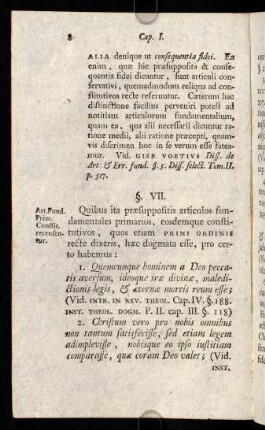 8 Cap. I.
ALIA denique ut consequentia fidei. Ea
enim, quæ hic præsupposita & conse-
quentia fidei dicuntur, sunt articuli conser-
vantivi, quemadmodum reliqua ad con-
stitutivos recte referuntur. Cæterum hac
distinctione facilius perveniri potest ad
notitiam articulorum fundamentalium,
quam ea, qua alii necessarii dicuntur ra-
tione medii, alii ratione præcepti, quam-
vis discrimen hoc in se verum esse fatea-
mur. Vid. GISB VOETIVS Diss. de
Art. & Err. fund. §. 5. Diss. select. Tom. II.
p. 517.
§. VII.
Art. Fund.
Prim.
Constit.
recensen-
tur.
Quibus ita præsuppositis articulos fun-
damentales primarios, eosdemque consti-
tutivos, quos etiam PRIMI ORDINIS
recte dixeris, hæc dogmata esse, pro cer-
to habemus:
1. Quemcunque hominem a Deo pecca-
tis aversum, ideoque iræ divinæ, maledi-
ctionis legis, & æternæ mortis reum esse;
(Vid. INTR. IN REV. THEOL. Cap. IV. §. 188.
INST. THEOL. DOGM. P. II. cap. III. §. 118)
2. Christum vero pro nobis omnibus
non tantum satisfecisse, sed etiam legem
adimplevisse, nobisque eo ipso iustitiam
comparasse, quæ coram Deo valet; (Vid.
INST.